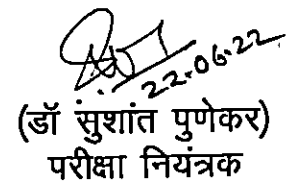 22.06.22
(डॉ सुशांत पुणेकर)
परीक्षा नियंत्रक